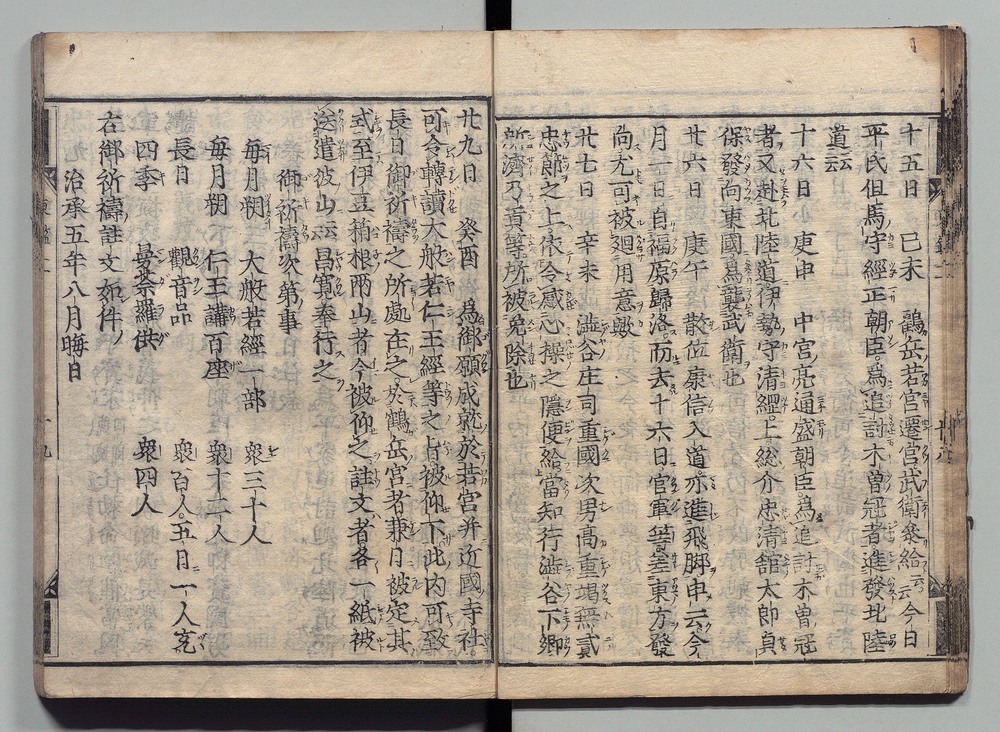 十五日 己未 鶴岳若宮遷宮武衛參給云云今日
平氏但馬守經正朝臣爲追討木曽冠者進發北陸
道云云
十六日 庚申 中宮亮通盛朝臣爲追討木曽冠
者又赴北陸道伊勢守清綱上総介忠清舘太郎貞
保發向東國爲襲武衛也
廿六日 庚午 散位康信入道亦進飛脚申云今
月一日自福原歸洛而去十六日官軍等差東方發
向尤可被廻用意歟
廿七日 辛未 澁谷庄司重國次男髙重竭無貳
忠節之上依令感心操之隱便給當知行澁谷下郷
所濟乃貢等所被免除也
廿九日 癸酉 爲御願成就於若宮并近國寺社
可令轉讀大般若仁王經等之旨被仰下此内可致
長日御祈禱之所處在之於鶴岳宮者兼日被定其
式至伊豆箱根兩山者今被仰之註文者各一紙被
送遣彼山云云昌寛奉行之
御祈禱次第事
毎月朔 大般若經一部 衆三十人
毎月朔 仁王講百座 衆十二人
長日 觀音品 衆百人五日一人宛
四季 曼荼羅供 衆四人
右御祈禱註文如件
治承五年八月晦日